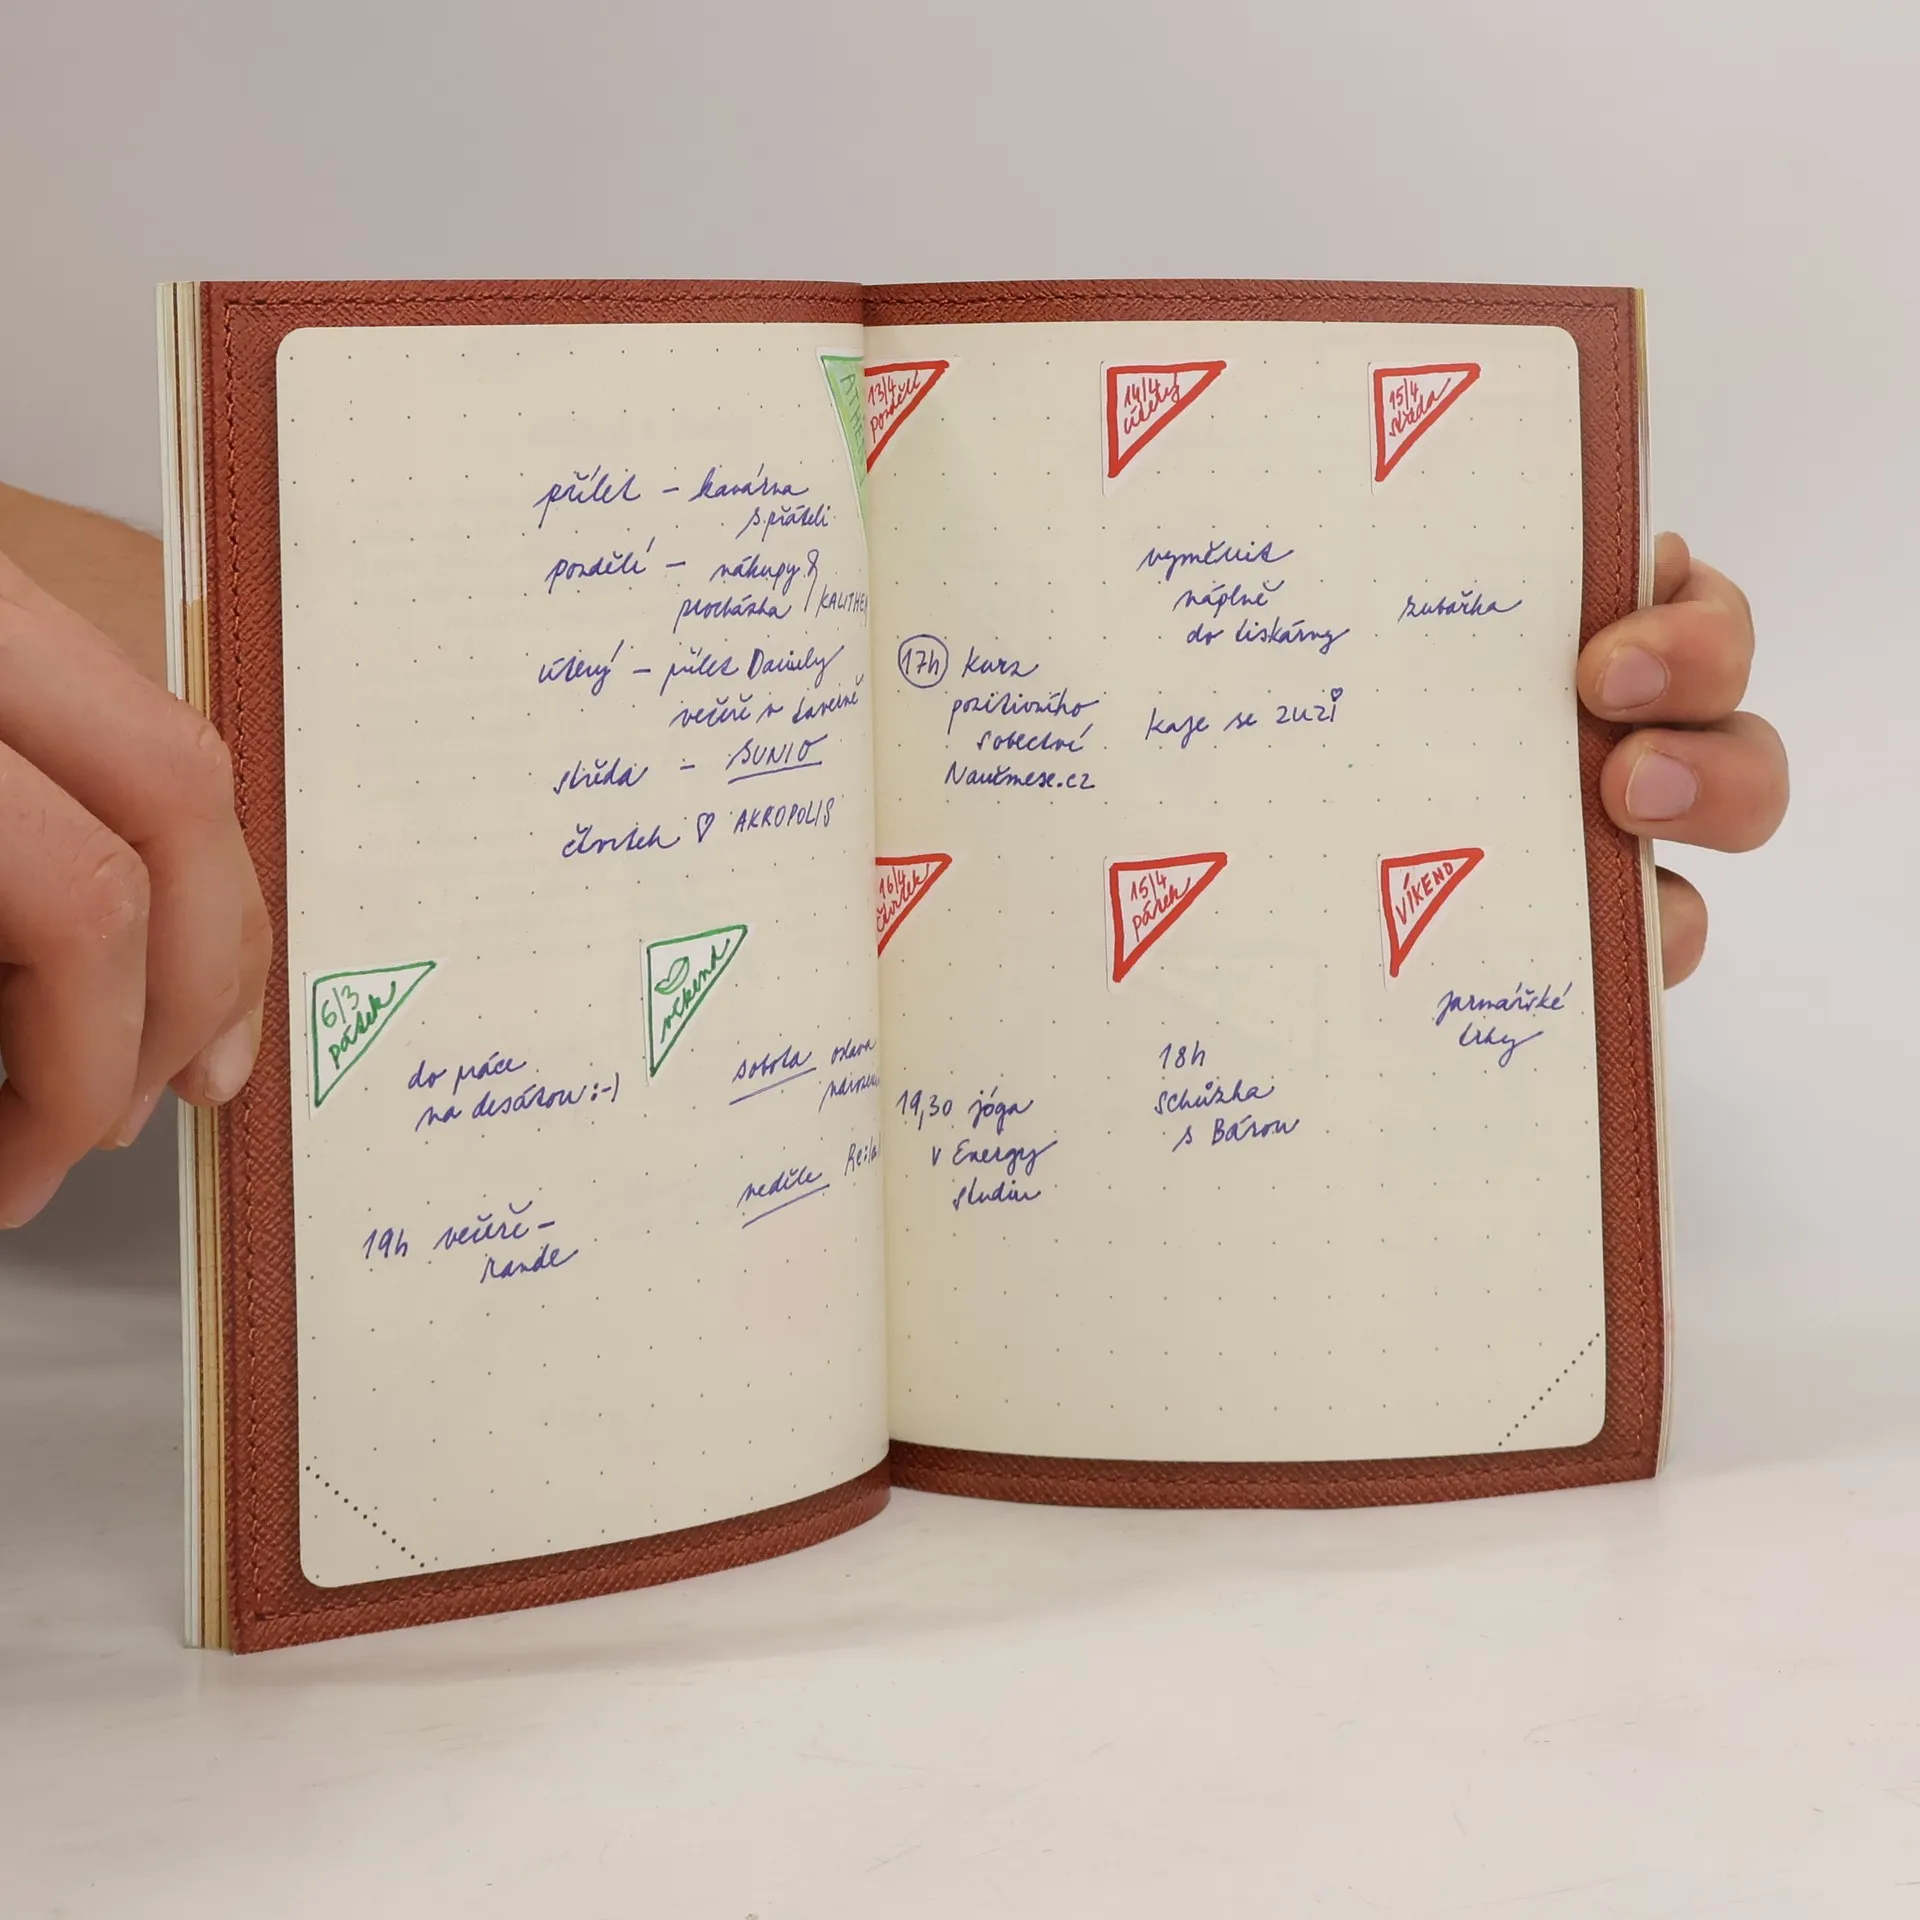 přílet – kavárna
s přáteli
pondělí – nákupy &
procházka
úterý – přílet Daniely
večeře v taverně
středa – SUNIO
čtvrtek ♡ AKROPOLIS
6/3
pátek
do práce
na desátou :-)
19h večeře –
rande
víkend
sobota oslava
neděle
13/4
pondělí
17h kurz
pozitivního
sobectví
Naučmese.cz
14/4
úterý
vyměnit
náplně
do tiskárny
kafe se ZUZI
15/4
středa
zubařka
16/4
čtvrtek
19,30 jóga
v Energy
studiu
15/4
pátek
18h
schůzka
s Bárou
VÍKEND
jarmařské
trhy